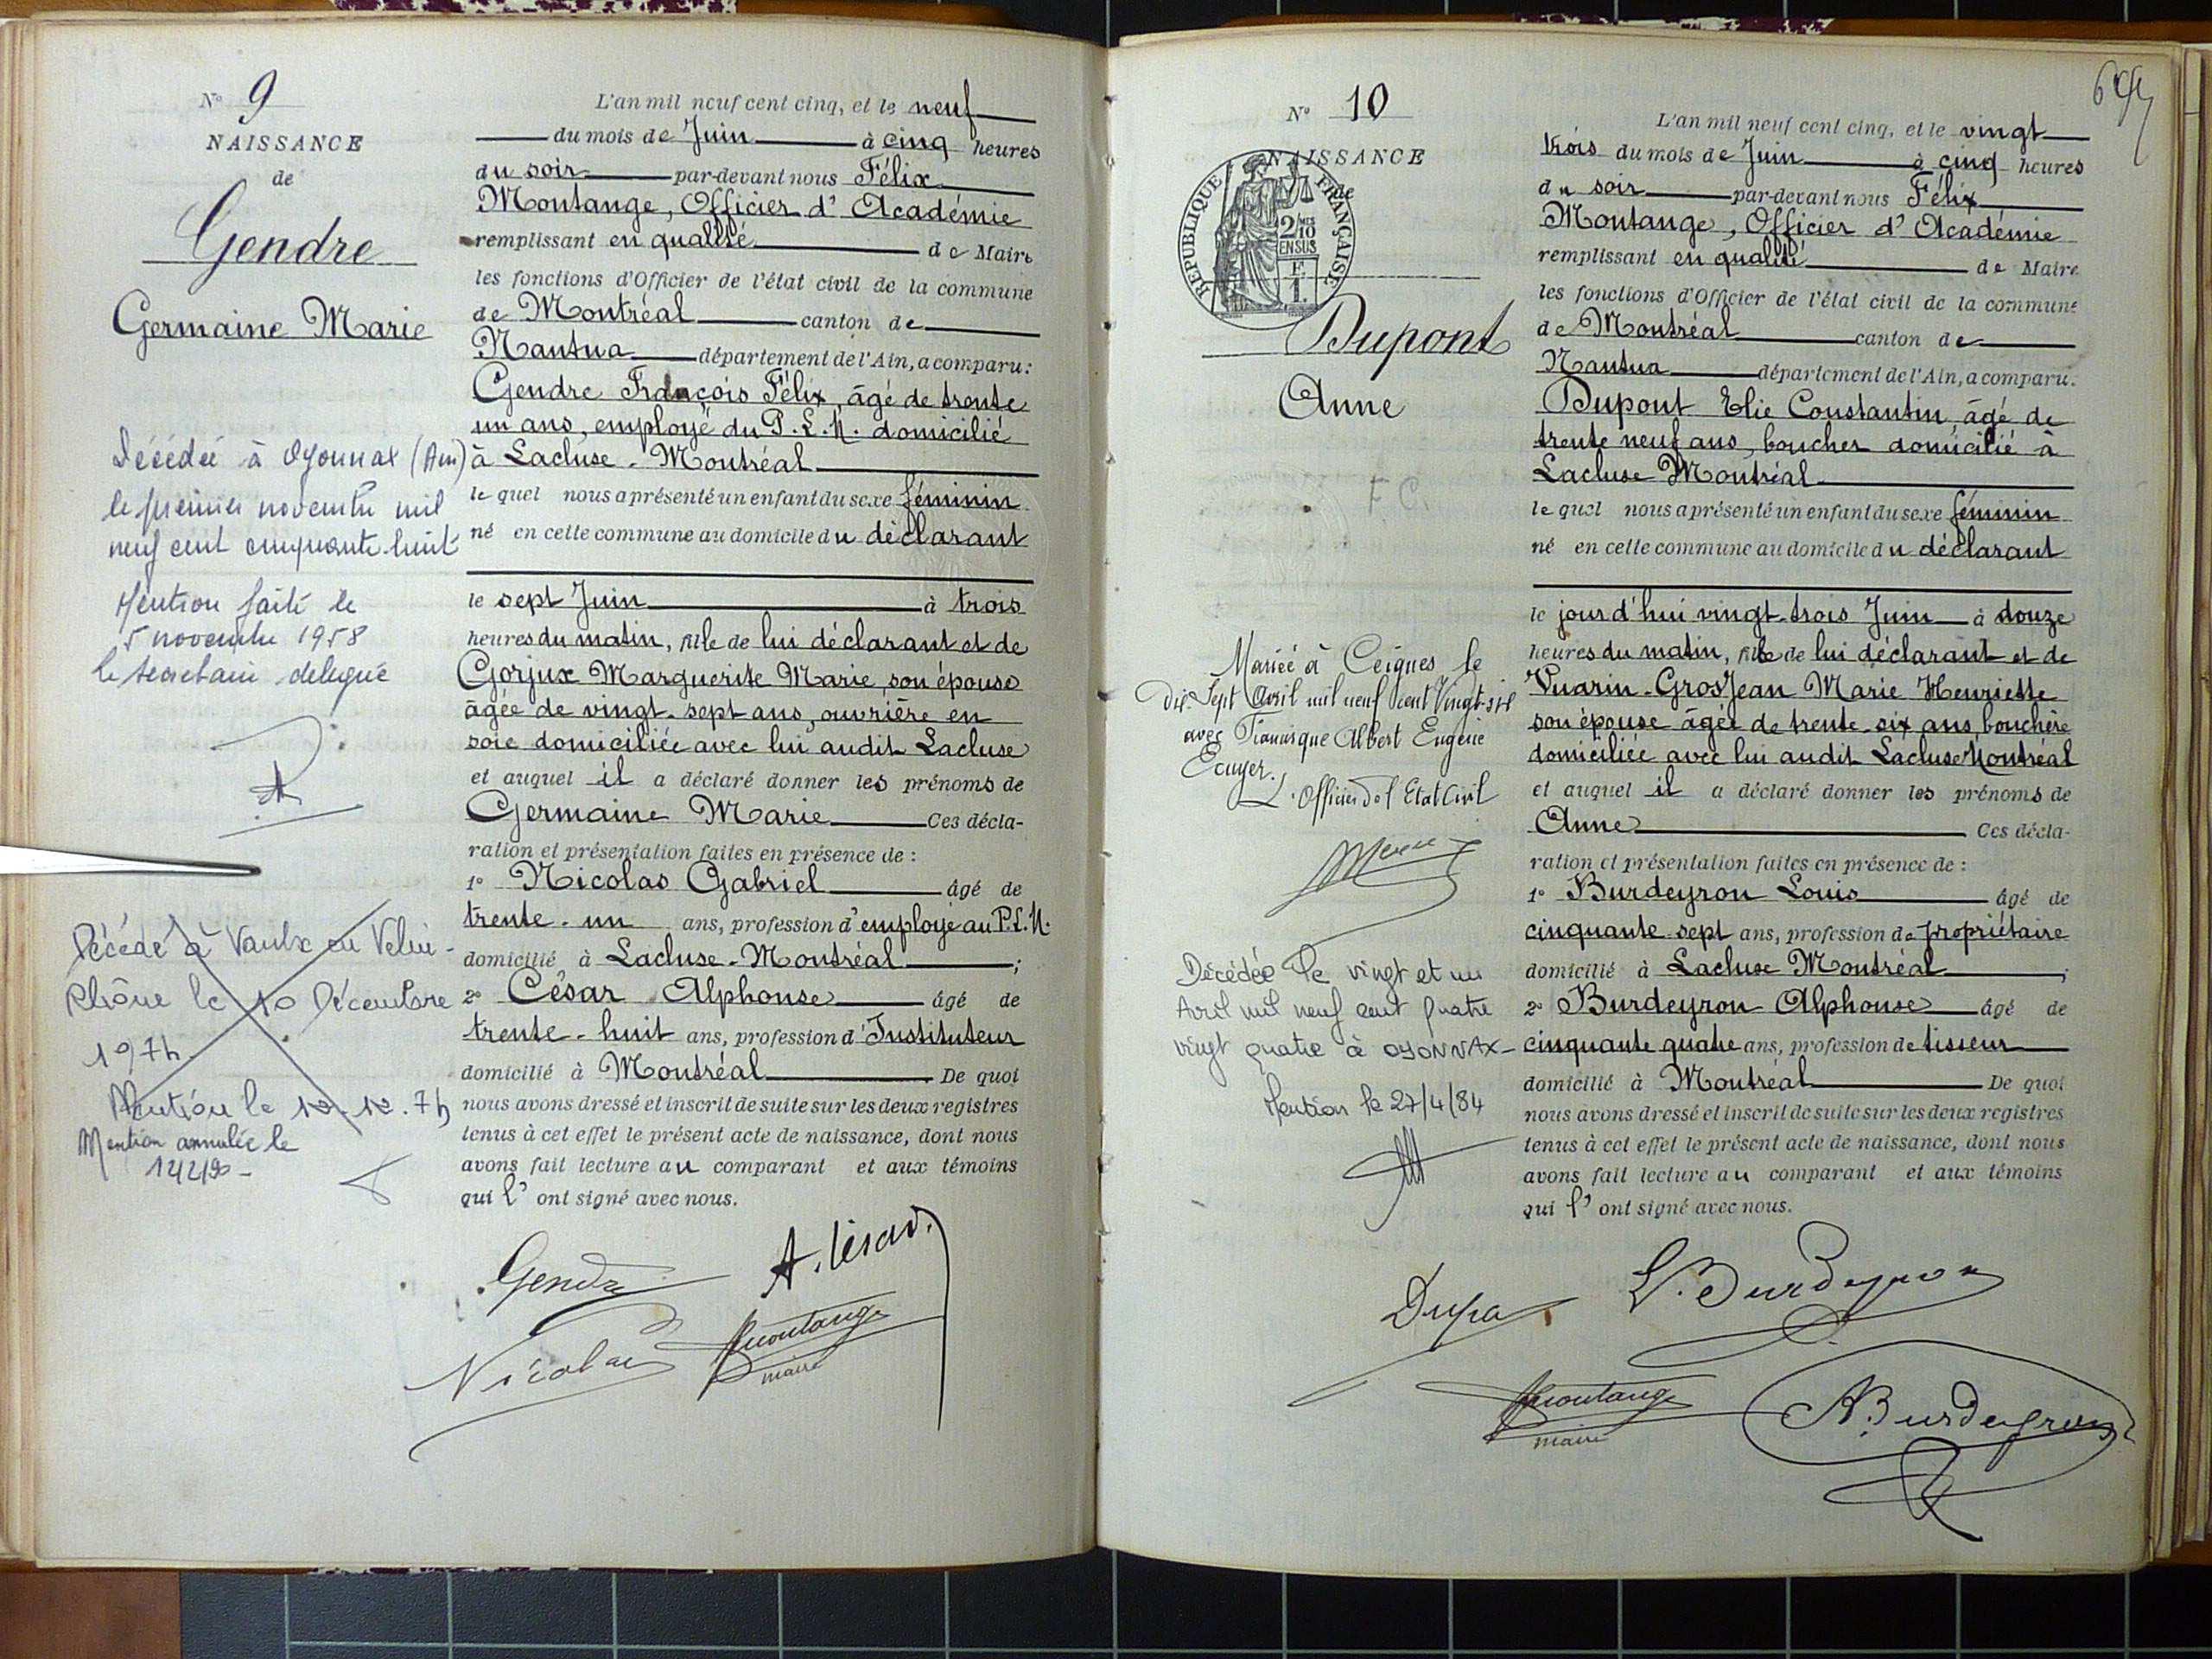 N° 9
NAISSANCE
de
Gendre
Germaine Marie
Décédée à Oyonnax (Ain)
le premier novembre mil
neuf cent cinquante huit
Mention faite le
5 novembre 1958
le secretaire délégué
Décédé à Vaulx en Velin -
Rhône le 10 Décembre
1974.
Mention le 12.12.74
Mention annulée le
L'an mil neuf cent cinq, et le neuf
du mois de Juin à cinq heures
du soir par-devant nous Félix
Montange, Officier d'Académie
remplissant en qualité de Maire
les fonctions d'Officier de l'état civil de la commune
de Montréal canton de
Nantua département de l'Ain, a comparu:
Gendre François Félix, âgé de trente
un ans, employé du P.L.M. domicilié
à Lacluse-Montréal
le quel nous a présenté un enfant du sexe féminin
né en cette commune au domicile du déclarant
le sept Juin à trois
heures du matin, fille de lui déclarant et de
Gorjux Marguerite Marie, son épouse
âgée de vingt-sept ans, ouvrière en
soie domiciliée avec lui audit Lacluse
et auquel il a déclaré donner les prénoms de
Germaine Marie Ces décla-
ration et présentation faites en présence de :
1° Nicolas Gabriel âgé de
trente-un ans, profession d'employé au P.L.M.
domicilié à Lacluse-Montréal ;
2° César Alphonse âgé de
trente-huit ans, profession d'Instituteur
domicilié à Montréal De quoi
nous avons dressé et inscrit de suite sur les deux registres
tenus à cet effet le présent acte de naissance, dont nous
avons fait lecture au comparant et aux témoins
qui l'ont signé avec nous.
Gendre
A. César
Nicolas
Montange
maire
N° 10
NAISSANCE
de
RÉPUBLIQUE FRANÇAISE
2/10
EN SUS
Dupont
Anne
F C.
Mariée à Ceignes le
Dix-Sept Avril mil neuf cent Vingt-six
avec Francisque Albert Eugène
Ecuyer.
L'Officier de l'Etat Civil
Décédée le vingt et un
Avril mil neuf cent quatre
vingt quatre à OYONNAX-
Mention le 27/4/84
L'an mil neuf cent cinq, et le vingt
trois du mois de Juin à cinq heures
du soir par-devant nous Félix
Montange, Officier d'Académie
remplissant en qualité de Maire
les fonctions d'Officier de l'état civil de la commune
de Montréal canton de
Nantua département de l'Ain, a comparu:
Dupont Elie Constantin, âgé de
trente neuf ans, boucher domicilié à
Lacluse Montréal
le quel nous a présenté un enfant du sexe féminin
né en cette commune au domicile du déclarant
le jourd'hui vingt-trois Juin à douze
heures du matin, fille de lui déclarant et de
Vuarin-GrosJean Marie Henriette
son épouse âgée de trente-six ans, bouchère
domiciliée avec lui audit Lacluse Montréal
et auquel il a déclaré donner les prénoms de
Anne Ces décla-
ration et présentation faites en présence de :
1° Burdeyron Louis âgé de
cinquante-sept ans, profession de propriétaire
domicilié à Lacluse Montréal ;
2° Burdeyron Alphonse âgé de
cinquante quatre ans, profession de tisseur
domicilié à Montréal De quoi
nous avons dressé et inscrit de suite sur les deux registres
tenus à cet effet le présent acte de naissance, dont nous
avons fait lecture au comparant et aux témoins
qui l'ont signé avec nous.
L. Burdeyron
Montange
maire
A. Burdeyron